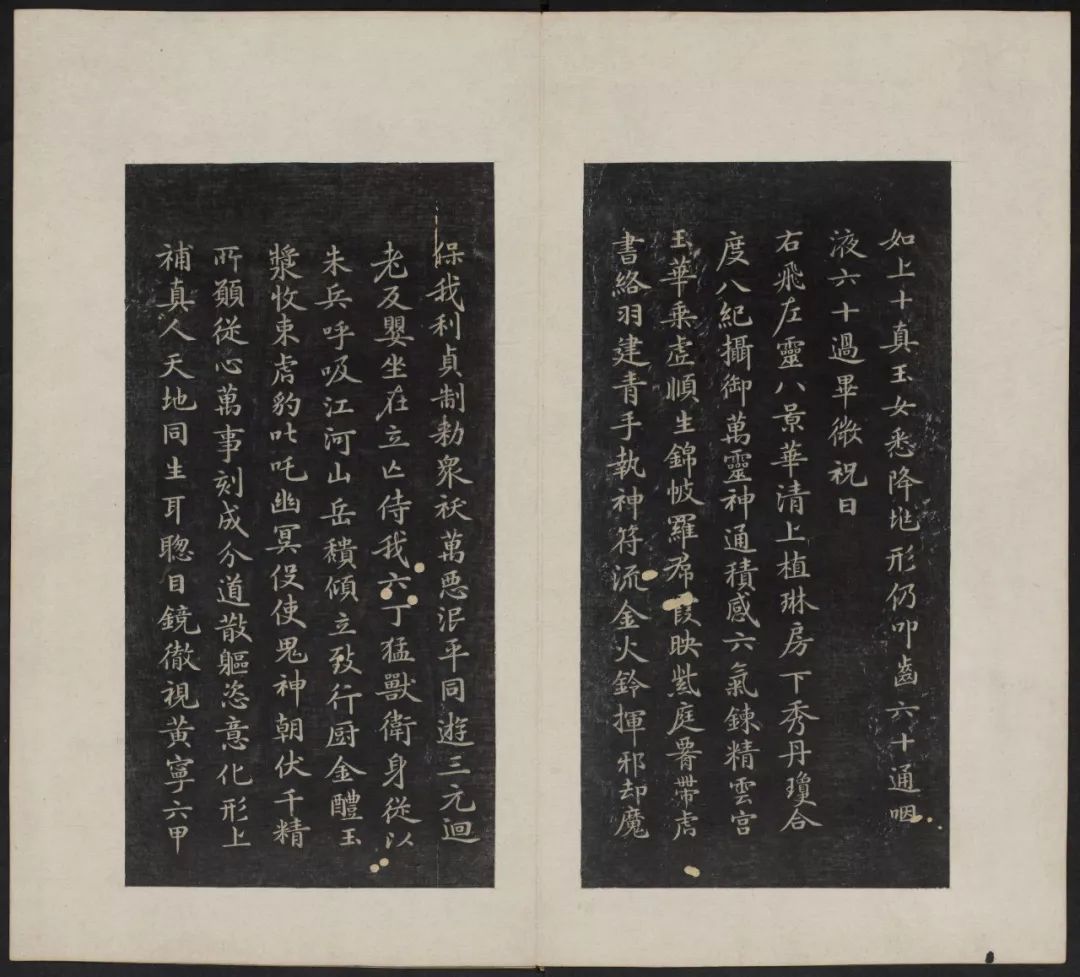 如上十真玉女悉降地形仍叩齒六十通咽
液六十過畢微祝曰
右飛左靈八景華清上植琳房下秀丹瓊合
度八紀攝御萬靈神通積感六氣鍊精雲宮
玉華乘虛順生錦帔羅帬霞映紫庭腰帶虎
書絡羽建青手執神符流金火鈴揮邪却魔
保我利貞制勑衆祅萬惡泯平同遊三元迴
老反嬰坐在立亡侍我六丁猛獸衛身從以
朱兵呼吸江河山岳穨傾立致行厨金醴玉
漿收束虎豹叱吒幽冥役使鬼神朝伏千精
所願從心萬事刻成分道散軀恣意化形上
補真人天地同生耳聰目鏡徹視黃寧六甲